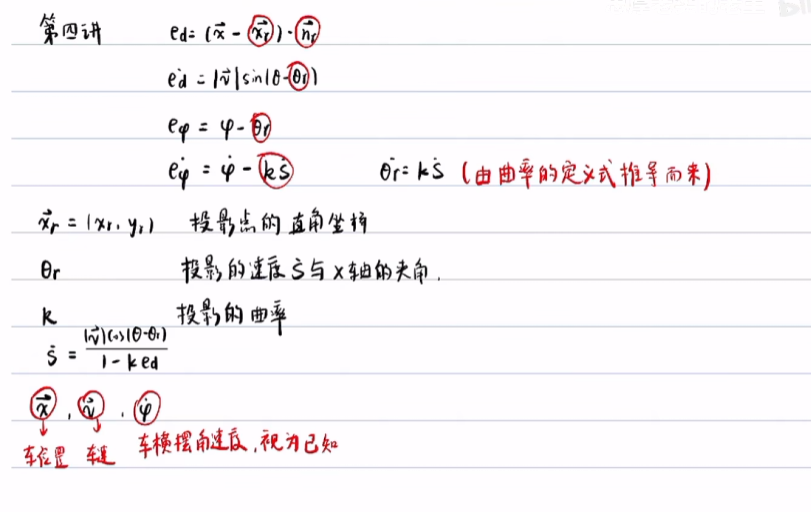 第四讲 ed = (x⃗ - x⃗r)·n⃗r
ėd = |v⃗| sin(θ-θr)
eφ = φ - θr
ėφ = φ̇ - kṡ θ̇r = kṡ (由曲率的定义式推导而来)
x⃗r = (xr, yr) 投影点的直角坐标
θr 投影的速度ṡ与x轴的夹角.
k 投影的曲率
ṡ = |v⃗|cos(θ-θr) / 1 - ked
x⃗, v⃗, φ̇
车位置 车速 车横摆角速度,视为已知